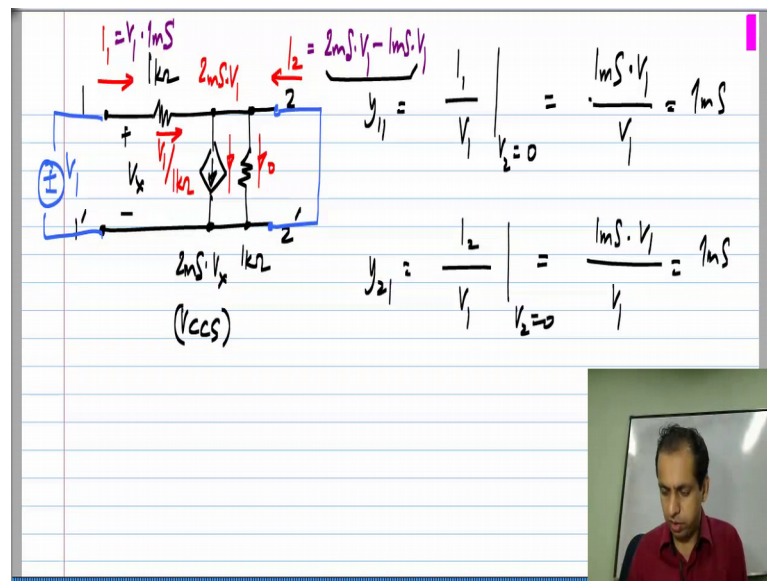 I₁ = V₁·1mS
I₂ = 2mS·V₁ − 1mS·V₁
1kΩ
2mS·V₁
1
2
+
Vx
−
V₁/1kΩ
0
± V₁
1'
2'
2mS·Vx
1kΩ
(VCCS)
y₁₁ = I₁/V₁ |V₂=0 = 1mS·V₁/V₁ = 1mS
y₂₁ = I₂/V₁ |V₂=0 = 1mS·V₁/V₁ = 1mS